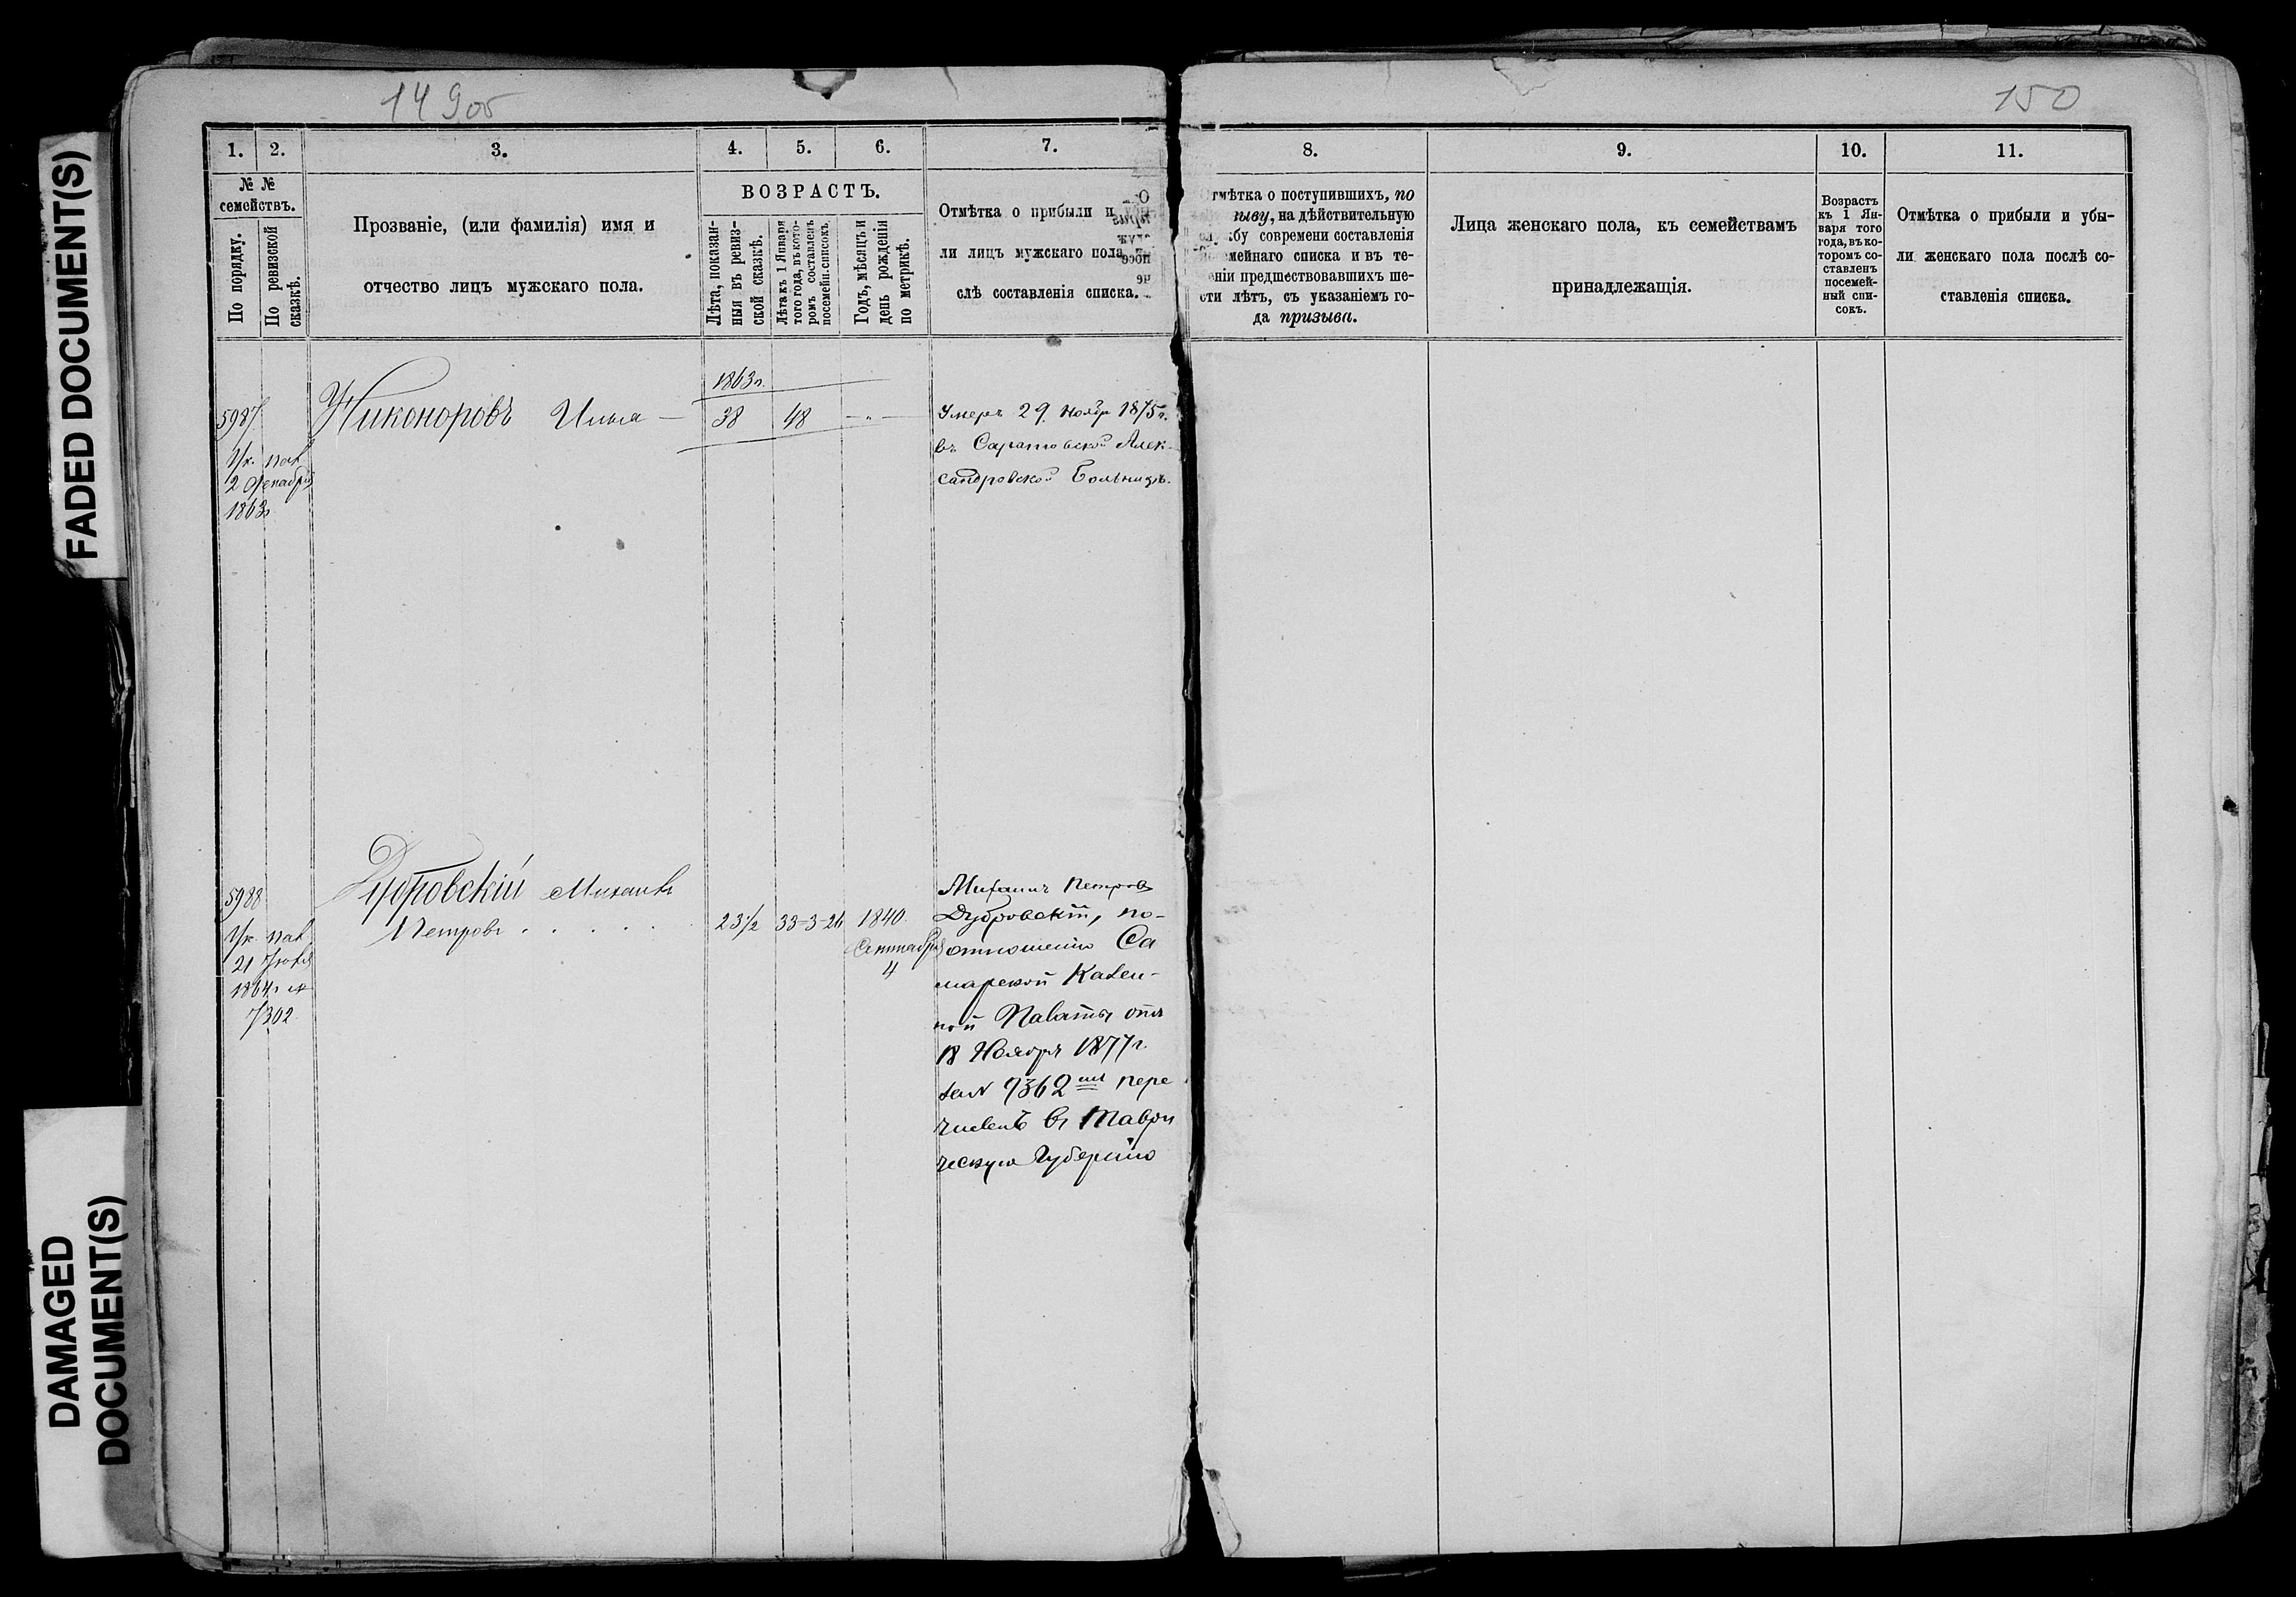 FADED DOCUMENT(S)
DAMAGED
DOCUMENT(S)
149об
150
1.
2.
3.
4.
5.
6.
7.
№ №
семействъ.
По порядку.
По ревизской
сказкѣ.
Прозваніе, (или фамилія) имя и
отчество лицъ мужскаго пола.
ВОЗРАСТЪ.
Лѣта, показан-
ныя въ ревиз-
ской сказкѣ.
Лѣта къ 1 Января
того года, въ кото-
ромъ составленъ
посемейн. списокъ.
Годъ, мѣсяцъ и
день рожденія
по метрикѣ.
Отмѣтка о прибыли и убы-
ли лицъ мужскаго пола
слѣ составленія списка.
8.
9.
10.
11.
тмѣтка о поступившихъ, по
зыву, на дѣйствительную
жбу современи составленія
мейнаго списка и въ те-
еніи предшествовавшихъ ше-
сти лѣтъ, съ указаніемъ го-
да призыва.
Лица женскаго пола, къ семействамъ
принадлежащія.
Возрастъ
къ 1 Ян-
варя того
года, въ ко-
торомъ со-
ставленъ
посемей-
ный спи-
сокъ.
Отмѣтка о прибыли и убы-
ли женскаго пола послѣ со-
ставленія списка.
1863г.
5987
Никоноровъ Илья
38
48
Умеръ 29 Ноябр 1875г.
въ Саратовской Алек-
сандровской Больницѣ.
Ук. пал.
2 Декабря
1863г
5988
Дубровскій Михаилъ
Петровъ
23½
33-3-26
1840
Сентября
4
Ук. пал.
21
1864г №
7302
Михаилъ Петровъ
Дубровскій, по-
отношенію Са
марской Казен-
ной Палаты отъ
18 Ноября 1877г.
за № 9362 пере
численъ въ Таври
ческую Губернію